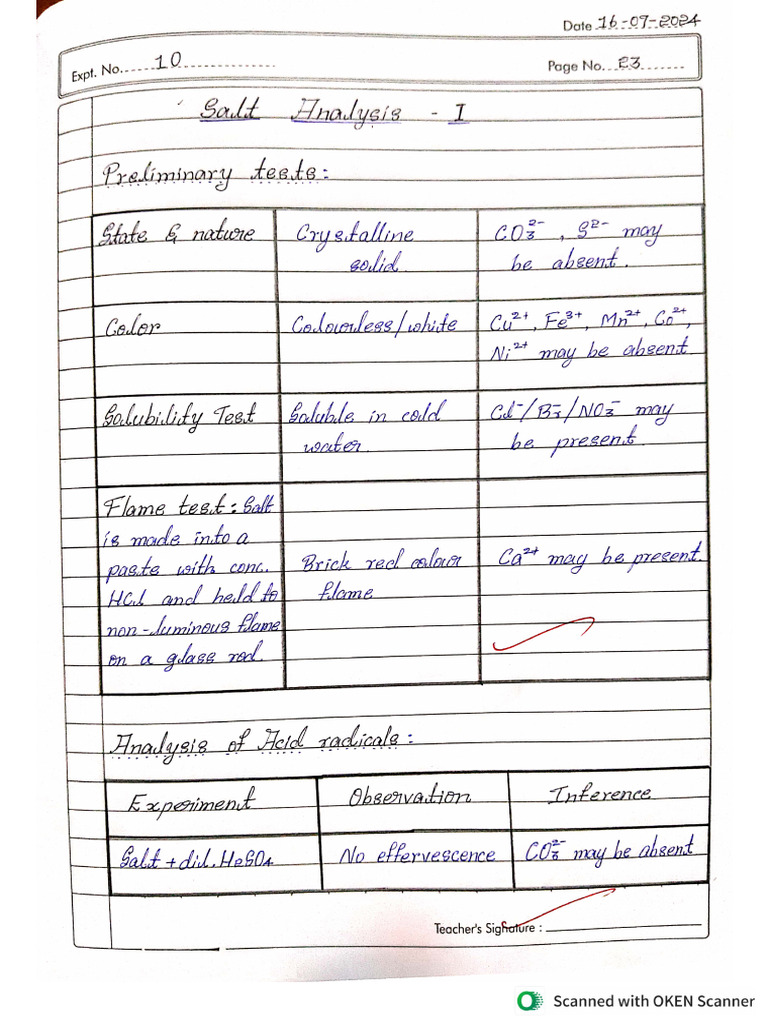 Date 16-07-2024
Expt. No. 10
Page No. 23
Salt Analysis - I
Preliminary tests:
State & nature
Crystalline
solid.
CO₃²⁻, S²⁻ may
be absent.
Color
Colourless/white
Cu²⁺, Fe³⁺, Mn²⁺, Co²⁺,
Ni²⁺ may be absent
Solubility Test
Soluble in cold
water.
Cl⁻/Br⁻/NO₃⁻ may
be present.
Flame test: Salt
is made into a
paste with conc.
HCl and held to
non-luminous flame
on a glass rod.
Brick red colour
flame
Ca²⁺ may be present.
Analysis of Acid radicals:
Experiment
Observation
Inference
Salt + dil. H₂SO₄
No effervescence
CO₃²⁻ may be absent
Teacher's Signature :
Scanned with OKEN Scanner